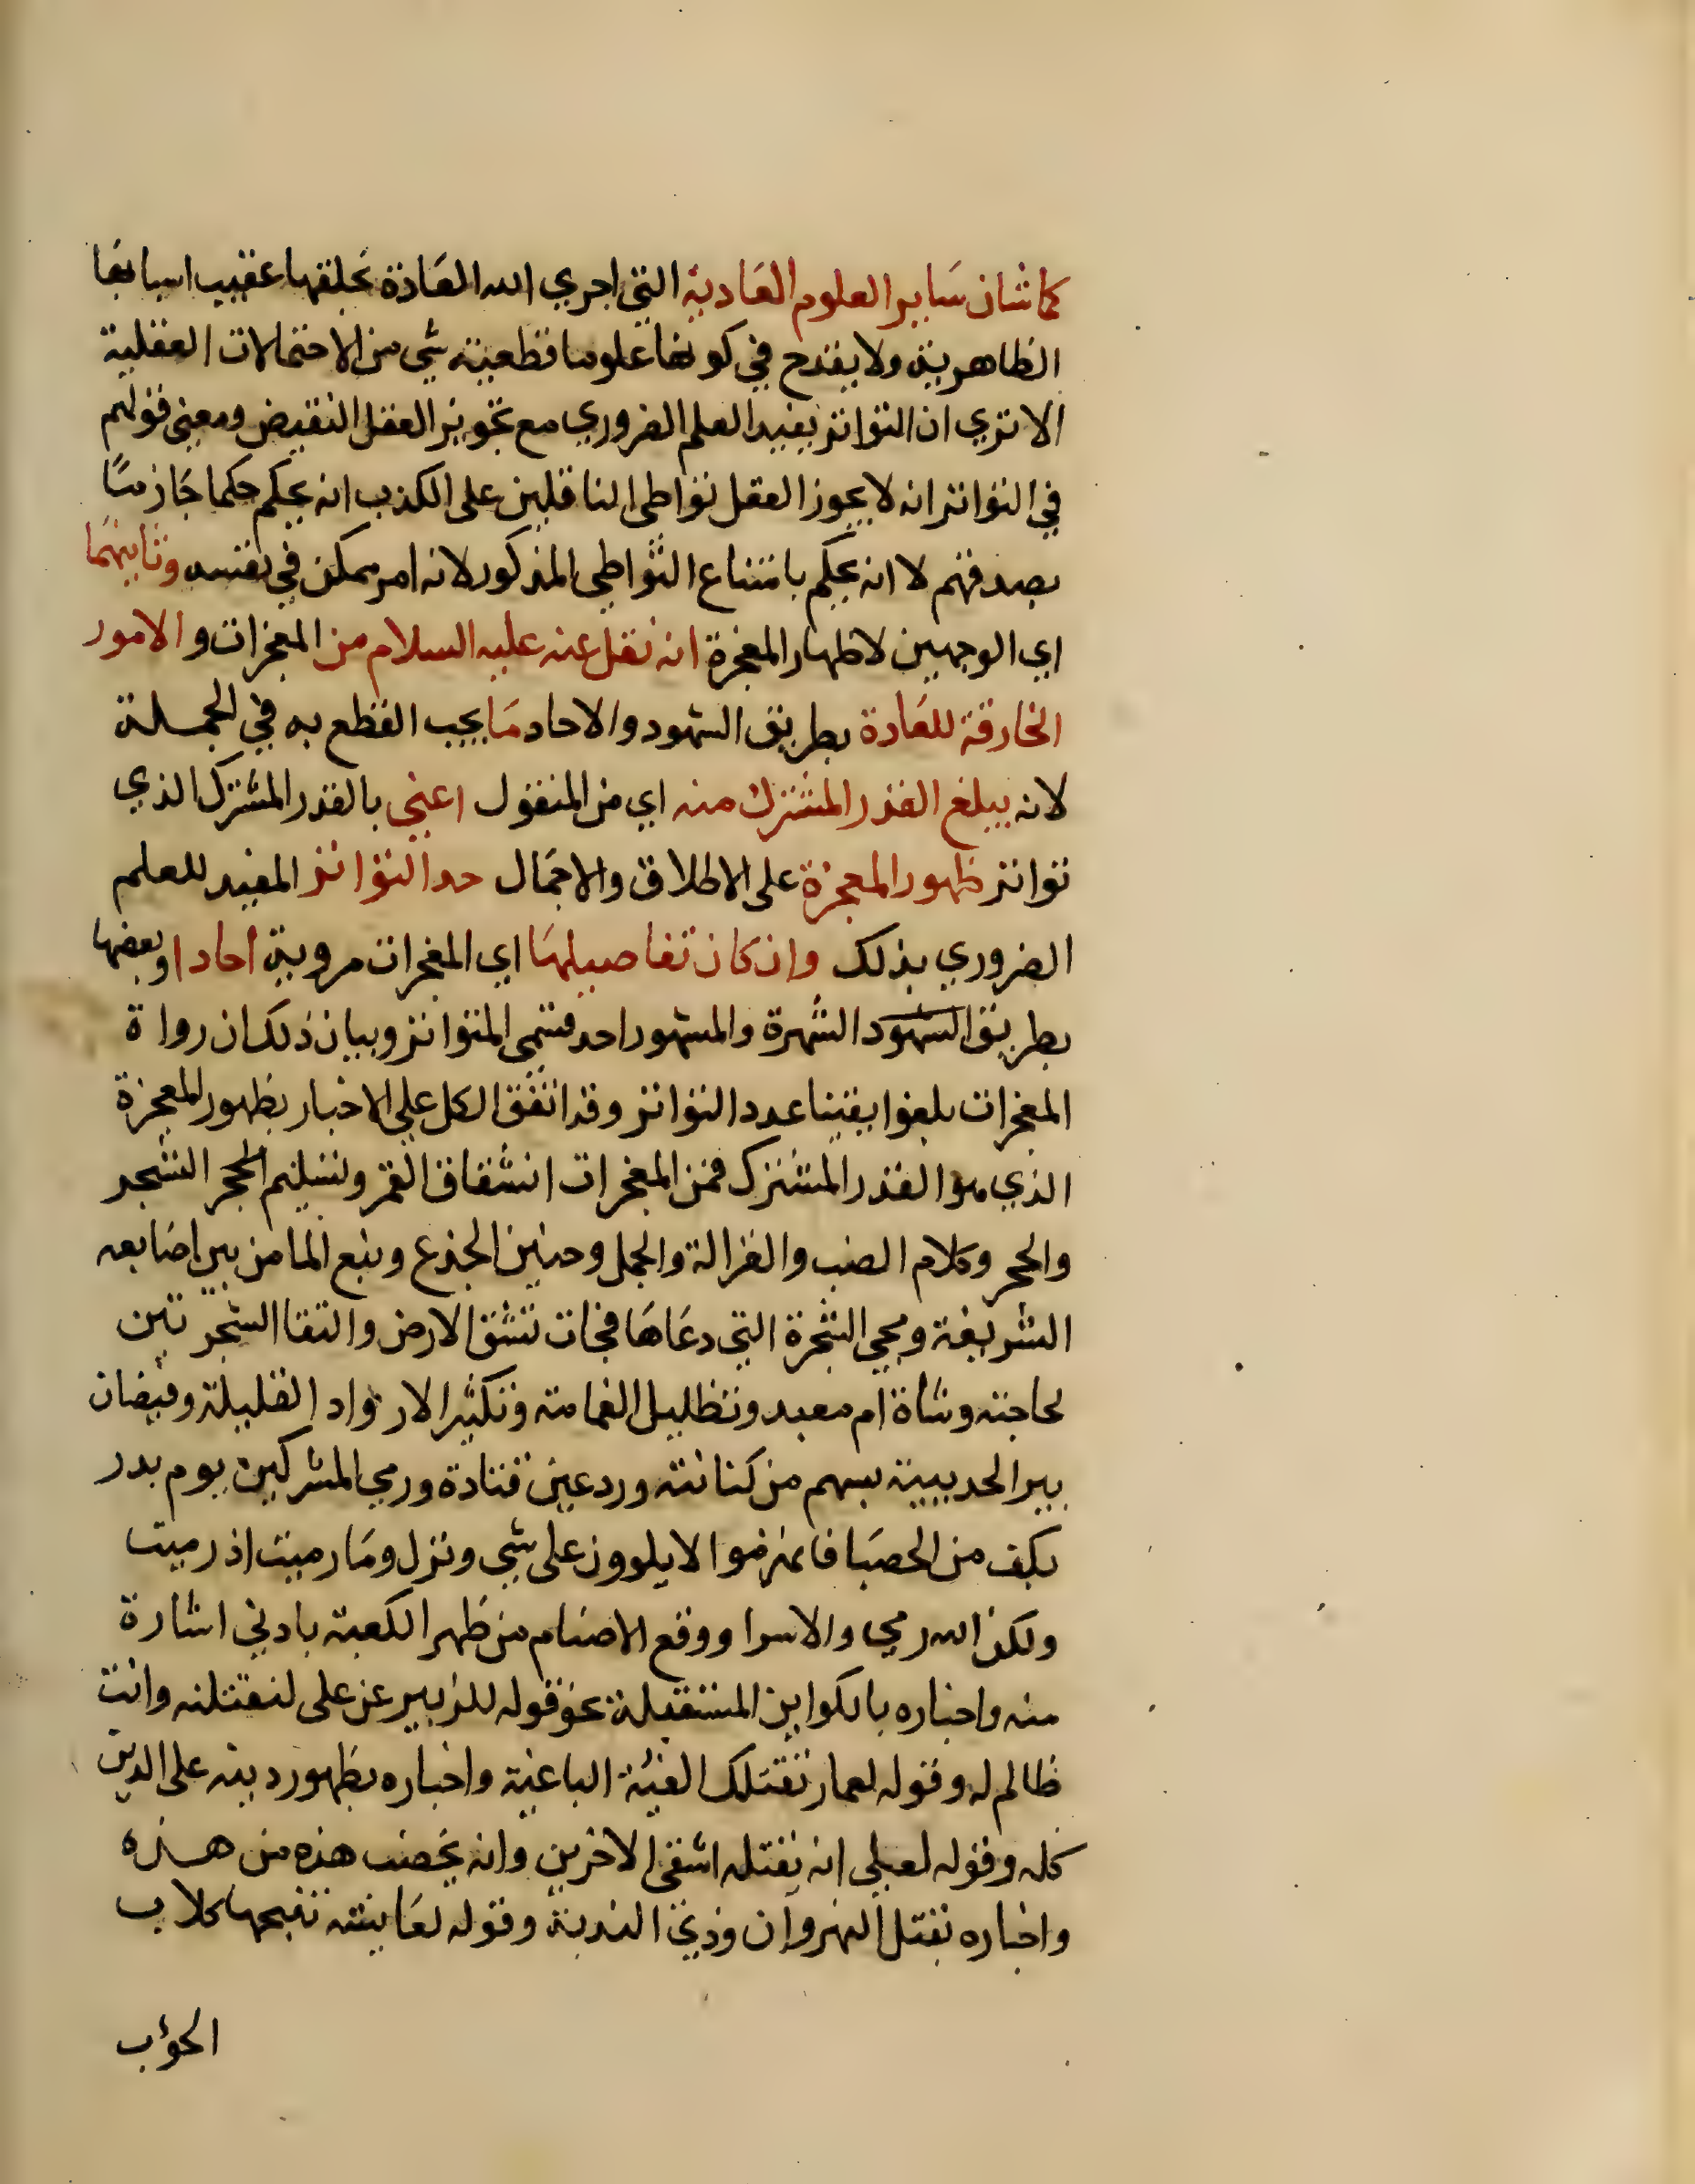 كما شان سَاير العلوم العَادية التي اجري الله العَادة بخلقها عقيب اسبابها
الظاهرية ولا يقدح في كونها علوما قطعية شي من الاحتمالات العقلية
الا تري ان التواتر يفيد العلم الضروري مع تجويز العقل النقيض ومعني قولهم
في التواتر انه لا يجوز العقل تواطي الناقلين علي الكذب انه يحكم حكما جَازمًا
بصدقهم لا انه يحكم بامتناع التواطي المذكور لانه امر ممكن في نفسه وثانيهمَا
اي الوجهين لاظهار المعجزة انه نقل عنه عليه السلام من المعجزات والامور
الخارقة للعَادة بطريق الشهود والاحاد مَا يجب القطع به في الجملة
لانه يبلغ القدر المشترك منه اي من المنقول اعني بالقدر المشترك الذي
تواتر ظهور المعجزة علي الاطلاق والاجمَال حد التواتر المفيد للعلم
الضروري بذلك وان كان تفاصيلهَا اي المعجزات مروية احادا وبعضها
بطريق الشهود الشهرة والمشهور احد قسمي المتواتر وبيان ذلك ان رواة
المعجزات بلغوا يقينا عدد التواتر وقد اتفق الكل علي الاخبار بظهور المعجزة
الذي هو القدر المشترك فمن المعجزات انشقاق القمر وتسليم الحجر الشجر
والحجر وكلام الضب والغزالة والجمل وحنين الجذع ونبع الما من بين اصَابعه
الشريفة ومجي الشجرة التي دعَاهَا فجات تشق الارض والتقا الشجرتين
لحاجته وشاة ام معبد وتظليل الغمامة وتكثير الازواد القليلة وفيضان
بير الحديبية بسهم من كنانته ورد عين قتادة ورمي المشركين يوم بدر
بكف من الحصبَا فانهزموا لا يلوون علي شي ونزل ومَا رميت اذ رميت
ولكن الله رمي والاسرا ووقع الاصنام من ظهر الكعبة بادني اشارة
منه واخباره بالكواين المستقبلة نحو قوله للزبير عن علي لتقتلنه وانت
ظالم له وقوله لعمار تقتلك الفئة الباغية واخباره بظهور دينه علي الدين
كله وقوله لعلي انه يقتله اشقي الاخرين وانه يخضب هذه من هذه
واخباره بقتل النهروان وذي الثدية وقوله لعَايشة تنبحها كلاب
الحوءب